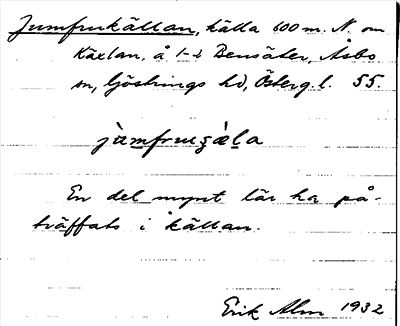 Jumfrukällan, källa 600 m. N. om
Käxlan, å 1-2 Bensäter, Asbo
sn, Göstrings hd, Österg. l. 55.
jùmfrugǽla
En del mynt lär ha på-
träffats i källan.
Erik Alm 1932